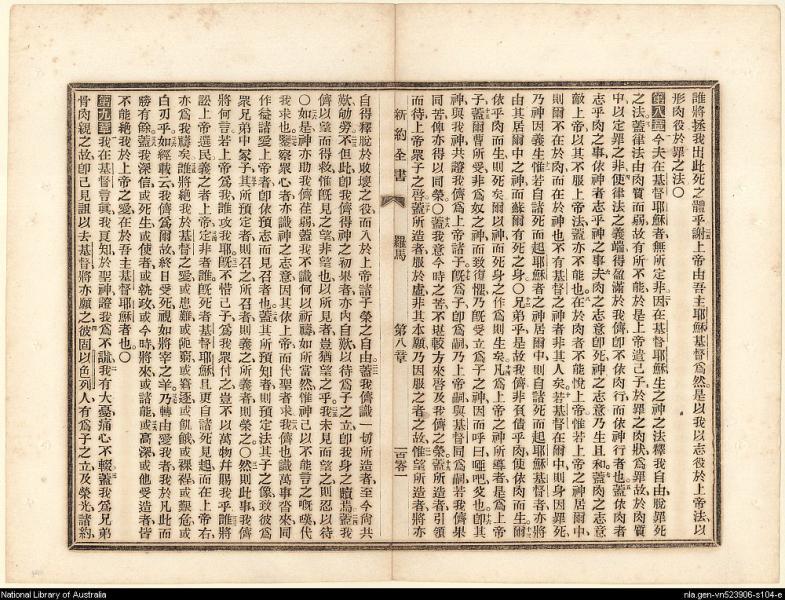 誰將拯我出此死之體乎謝上帝由吾主耶穌基督爲然是以我以志役於上帝法以
形肉役於罪之法○
第八章今夫在基督耶穌者無所定非因在基督耶穌生之神之法釋我自由脫罪死
之法蓋律法由肉質而弱故有所不能於是上帝遣己子於罪之肉狀爲罪故於肉質
中以定罪之非使律法之義端得盈滿於我儕卽不依肉行而依神行者也蓋依肉者
志乎肉之事依神者志乎神之事夫肉之志意卽死神之志意乃生且和蓋肉之志意
敵上帝以其不服上帝法蓋亦不能也在於肉者不能悅上帝惟若上帝之神居爾中
則爾不在於肉而在於神也不有基督之神者非其人矣若基督在爾中則身因罪死
乃神因義生惟若自諸死而起耶穌者之神居爾中則自諸死而起基督者亦將
由其居爾中之神而蘇爾有死之身○兄弟乎是故我儕非負債乎肉使依肉而生爾
依乎肉而生則死矣爾以神而死身之作爲則生矣凡爲上帝之神所導者是爲上帝
子蓋爾曹所受非爲奴之神而致復懼乃旣受立爲子之神因而呼曰啞吧父也卽其
神與我神共證我儕爲上帝諸子旣爲子卽爲嗣乃上帝嗣與基督同爲嗣若我儕果
同苦俾亦得以同榮○蓋我意今時之苦不堪較方來啓及我儕之榮蓋所造者引領
而待上帝衆子之啓蓋所造者服於虛非其本願乃因服之者之故惟望所造者將亦
新約全書 羅馬 第八章 一百零一
自得釋脫於敗壞之役而入於上帝諸子榮之自由蓋我儕識一切所造者至今尙共
歎劬勞不但此卽我儕得神之初果者亦內自歎以待爲子之立卽我身之贖焉蓋我
儕以望而得救惟旣見之望非望也以所見者豈猶望之乎我未見而望之則忍以待
○如是神亦助我儕在弱蓋我不識何以祈禱如所當然惟神己以不能言之嘅嘆代
我求也鑒察衆心者亦識神之志意因其依上帝而代聖者求我儕也識萬事咨來同
作益諸愛上帝者卽依預志而見召者也蓋其所預知者則預定法其子之像致彼爲
衆兄弟中冢子其所預定者則召之所召者則義之所義者則榮之○然則此事我儕
將何言若上帝爲我誰攻我耶旣不惜己子爲我衆付之豈不以萬物幷賜我乎誰將
訟上帝選民義之者上帝定非者誰旣死者基督耶穌且更自諸死見起而在上帝右
亦爲我禱矣誰將絕我於基督之愛或患難或阨窮或窘逐或飢餓或裸裎或艱危或
白刃乎如經載云我儕爲爾故終日受死視如將宰之羊乃轉由愛我者我於凡此而
勝有餘蓋我深信或死生或使者或執政或今時將來或諸能或高深或他受造者皆
不能絕我於上帝之愛在於吾主基督耶穌者也○
第九章我在基督言眞我良知於聖神證我不讆我有大憂痛心不輟蓋我爲兄弟
骨肉親之故卽己見詛以去基督將亦願之彼固以色列人有爲子之立及榮光諸約
National Library of Australia
nla.gen-vn523906-s104-e